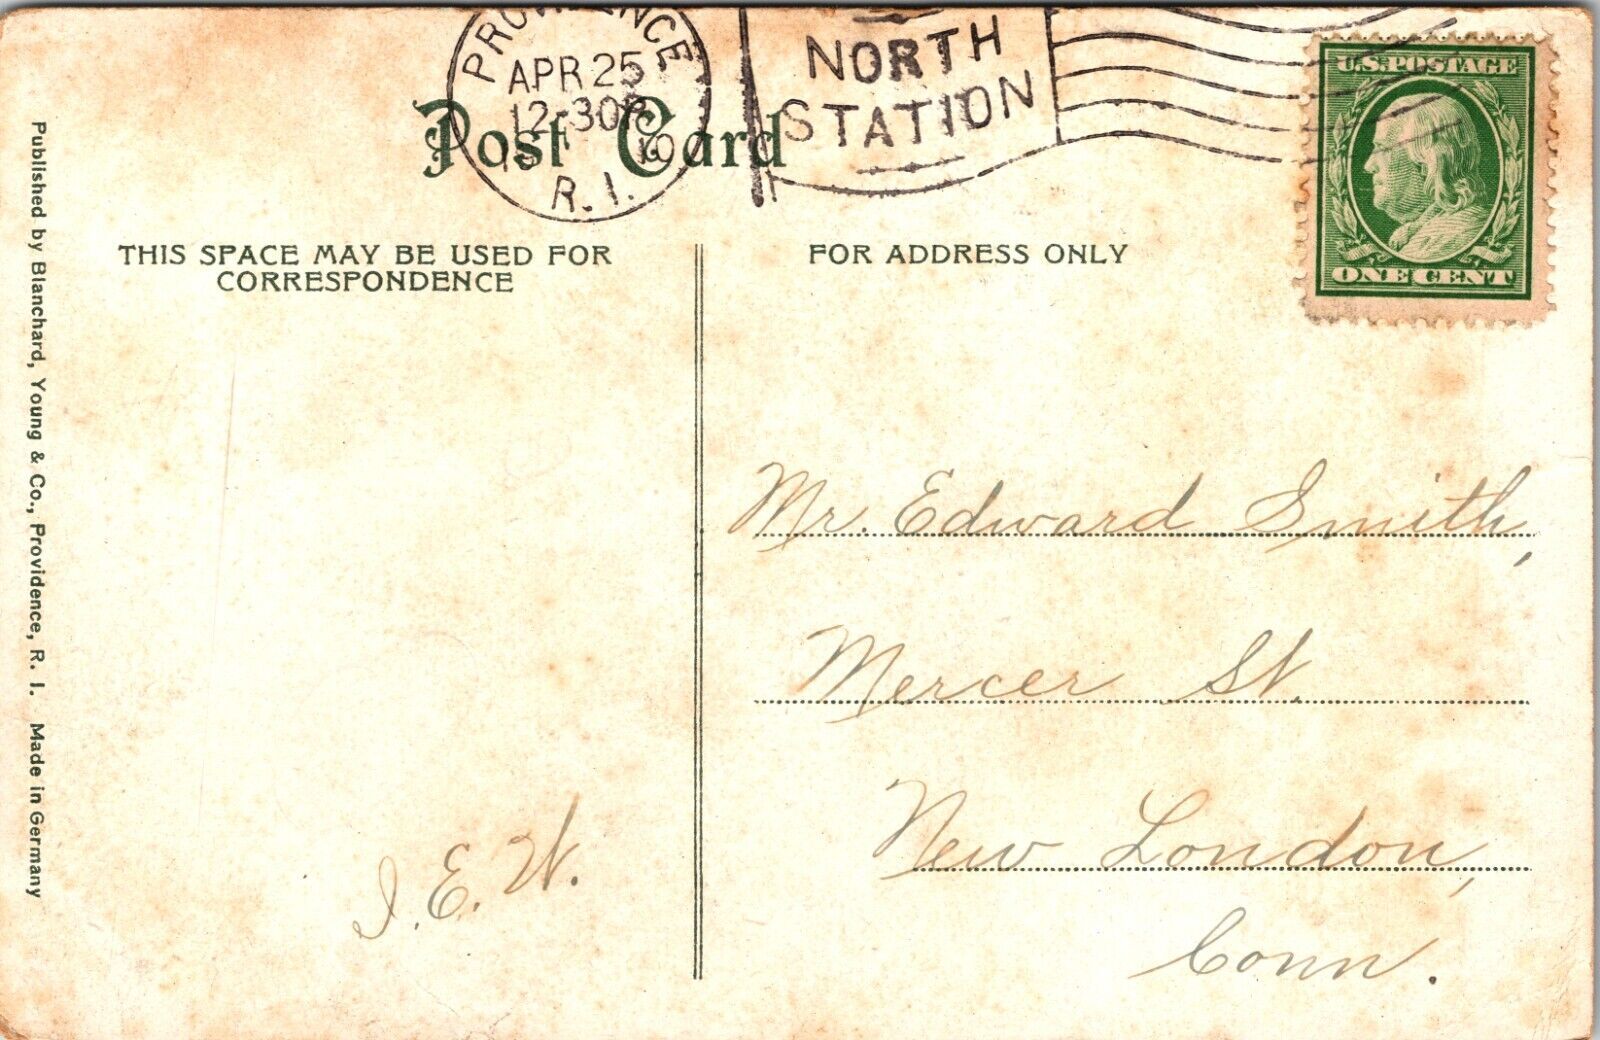 PROVIDENCE
APR 25
12-30P
19 10
R. I.
NORTH
STATION
U.S. POSTAGE
ONE CENT
Post Card
THIS SPACE MAY BE USED FOR
CORRESPONDENCE
FOR ADDRESS ONLY
Published by Blanchard, Young & Co., Providence, R. I. Made in Germany
J. E. W.
Mr. Edward Smith,
Mercer St.
New London,
Conn.